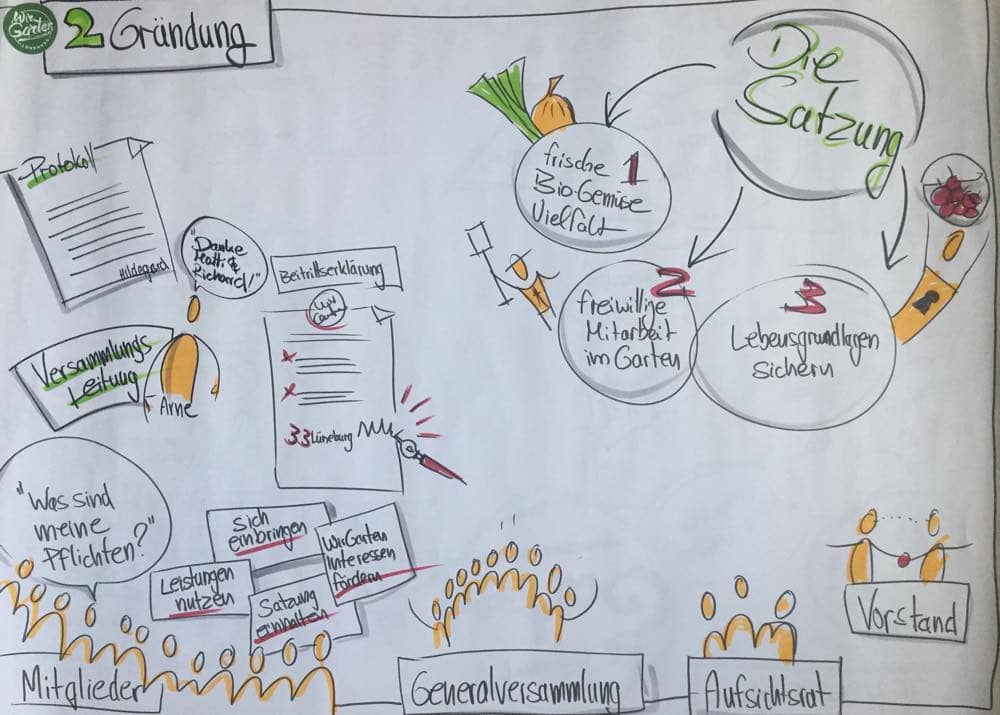 Wir
Garten
2 Gründung
Die
Satzung
1
frische
Bio-Gemüse
Vielfalt
2
freiwillige
Mitarbeit
im Garten
3
Lebensgrundlagen
sichern
Protokoll
Hildegard
"Danke
Matti &
Richard!"
Versammlungs
Leitung
Arne
Beitrittserklärung
x
x
33 Lüneburg
"Was sind
meine
Pflichten?"
sich
einbringen
WirGarten
Interessen
fördern
Leistungen
nutzen
Satzung
einhalten
Mitglieder
Generalversammlung
Aufsichtsrat
Vorstand